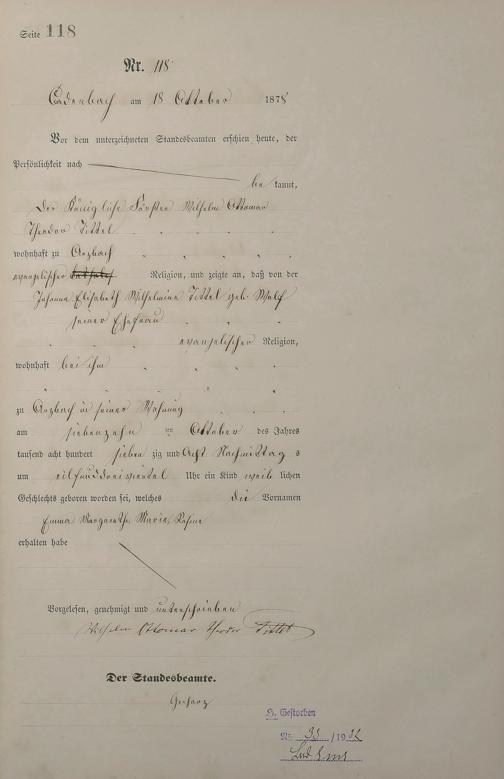 Seite 118
Nr. 118
Cadenbach am 18 Oktober 1878
Vor dem unterzeichneten Standesbeamten erschien heute, der
Persönlichkeit nach
be kannt,
Der Königliche Förster Wilhelm Ottomar
Theodor Tittel
wohnhaft zu Arzbach
evangelischer Religion, und zeigte an, daß von der
Johanna Elisabeth Wilhelmine Tittel geb. Wolf
seiner Ehefrau
evangelischer Religion,
wohnhaft bei ihm
zu Arzbach in seiner Wohnung
am siebenzehn ten Oktober des Jahres
tausend acht hundert sieben zig und Acht Nachmittag s
um eilf und drei viertel Uhr ein Kind weib lichen
Geschlechts geboren worden sei, welches die Vornamen
Emma Margaretha Maria
erhalten habe
Vorgelesen, genehmigt und unterschrieben
Wilhelm Ottomar Theodor Tittel
Der Standesbeamte.
Gestorben
Nr. 33 /19
Bad Ems